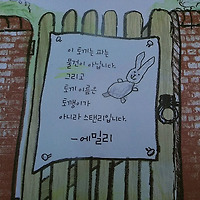 이 토끼는 파는
물건이 아닙니다.
그리고
토끼 이름은
토깽이가
아니라 스탠리입니다.
-에밀리